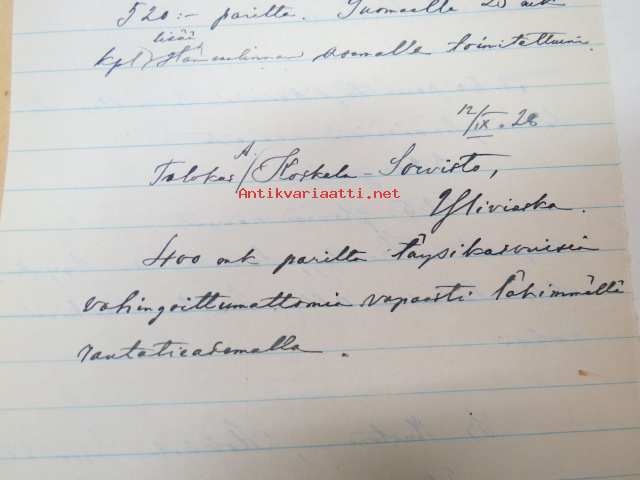 520:- parilta. Suomaalle 25 mk
lisää
kpl Hämeenlinnan asemalle toimitettuina.
12/IX.28
Talokas A/Koskela-Sorvisto,
Antikvariaatti.net
Ylivieska.
400 mk parilta täysikasvuisia
vahingoittumattomia vapaasti lähimmällä
rautatieasemalla.